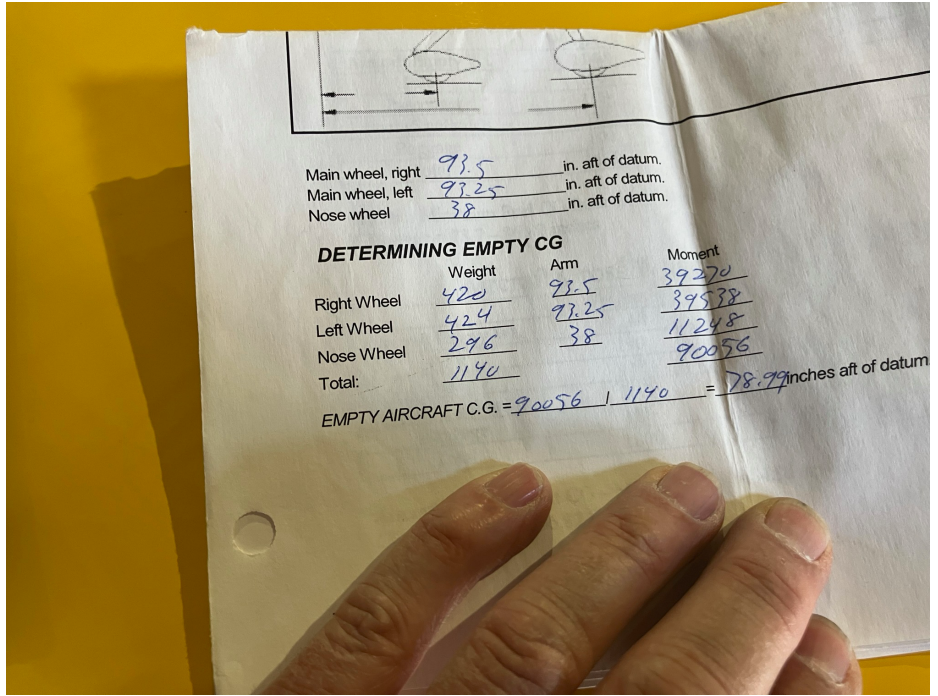 Main wheel, right 93.5 in. aft of datum.
Main wheel, left 93.25 in. aft of datum.
Nose wheel 38 in. aft of datum.
DETERMINING EMPTY CG
Weight Arm Moment
Right Wheel 420 93.5 39270
Left Wheel 424 93.25 39538
Nose Wheel 296 38 11248
Total: 1140 90056
EMPTY AIRCRAFT C.G. = 90056 / 1140 = 78.99 inches aft of datum.